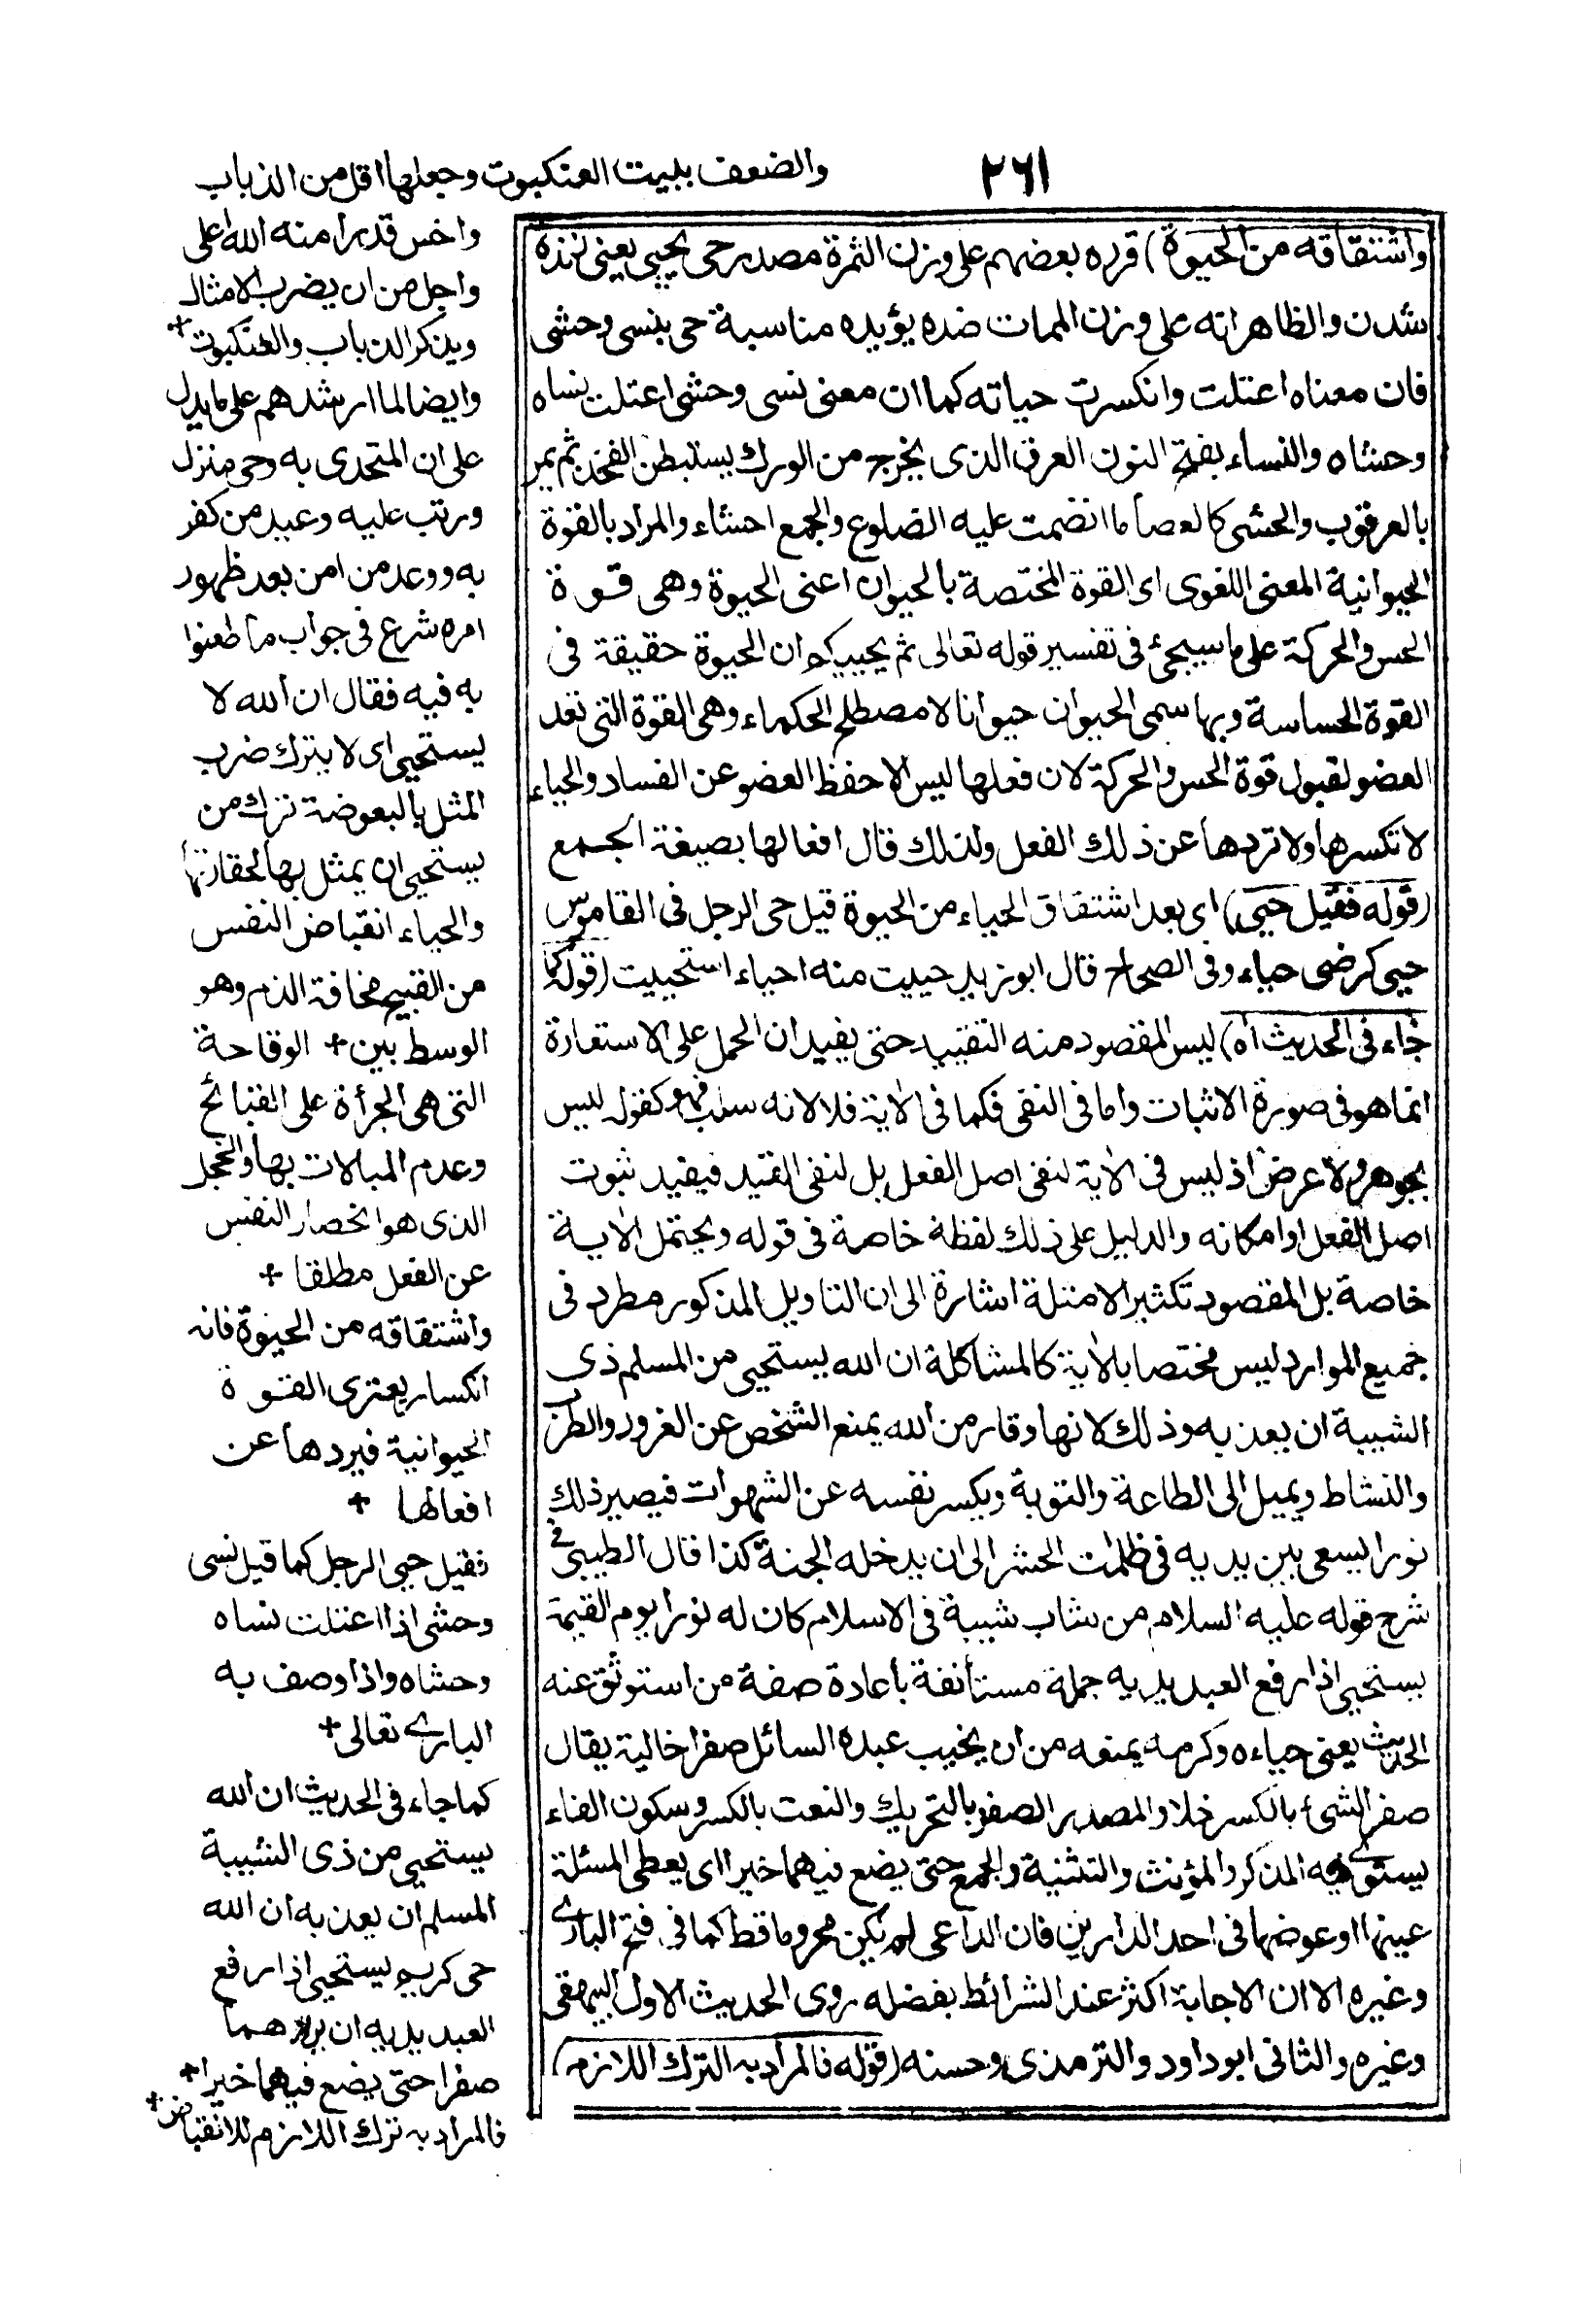 ٢٦١
واشتقاقه من الحيوة) قرره بعضهم على وزن الثمرة مصدر حى يحيى يعنى زنده
شدن والظاهر انه على وزن الممات ضده يؤيده مناسبة حى بنسى وحشى
فان معناه اعتلت وانكسرت حياته كما ان معنى نسى وحشى اعتلت نساه
وحشاه والنساء بفتح النون العرق الذى يخرج من الورك يستبطن الفخذ ثم يمر
بالعرقوب والحشى كالعصا ما انضمت عليه الضلوع والجمع احشاء والمراد بالقوة
الحيوانية المعنى اللغوى اى القوة المختصة بالحيوان اعنى الحيوة وهى قوة
الحس والحركة على ما سيجئ فى تفسير قوله تعالى ثم يحييكم ان الحيوة حقيقة فى
القوة الحساسة وبها سمى الحيوان حيوانا لا مصطلح الحكماء وهى القوة التى تعد
العضو لقبول قوة الحس والحركة لان فعلها ليس الا حفظ العضو عن الفساد والحياء
لا تكسرها ولا تردها عن ذلك الفعل ولذلك قال افعالها بصيغة الجمع
(قوله فقيل حيى) اى بعد اشتقاق الحياء من الحيوة قيل حى الرجل فى القاموس
حيى كرضى حياء وفى الصحاح قال ابو زيد حييت منه احياء استحييت (قوله كما
جاء فى الحديث اه) ليس المقصود منه التقييد حتى يفيد ان الحمل على الاستعارة
انما هو فى صورة الاثبات واما فى النفى فكما فى الاية فلا لانه سلب فهو كقولہ ليس
بجوهر ولا عرض اذ ليس فى الاية لنفى اصل الفعل بل لنفى القيد فيفيد ثبوت
اصل الفعل او امكانه والدليل على ذلك لفظة خاصة فى قوله ويحتمل الاية
خاصة بل المقصود تكثير الامثلة اشارة الى ان التاويل المذكور مطرد فى
جميع الموارد ليس مختصا بالاية كالمشاكلة ان الله يستحيى من المسلم ذى
الشيبة ان يعذبه وذلك لانها وقار من الله يمنع الشخص عن الغرور والطرب
والنشاط ويميل الى الطاعة والتوبة ويكسر نفسه عن الشهوات فيصير ذلك
نورا يسعى بين يديه فى ظلمات الحشر الى ان يدخله الجنة كذا قال الطيبى فى
شرح قوله عليه السلام من شاب شيبة فى الاسلام كان له نورا يوم القيمة
يستحيى اذا رفع العبد يديه جملة مستأنفة باعادة صفة من استوثق عنه
الحديث يعنى حياءه وكرمه يمنعه من ان يخيب عبده السائل صفرا خالية يقال
صفر الشئ بالكسر خلا والمصدر الصفر بالتحريك والنعت بالكسر وسكون الفاء
يستوى فيه المذكر والمؤنث والتثنية والجمع حتى يضع فيهما خيرا اى يعطى المسئلة
عينها او عوضها فى احد الدارين فان الداعى لم يكن محروما قط كما فى فتح البارى
وغيره الا ان الاجابة اكثر عند الشرائط بفضله روى الحديث الاول البيهقى
وغيره والثانى ابو داود والترمذى وحسنه (قوله فالمراد به الترك اللازم)
والضعف ببيت العنكبوت وجعلها اقل من الذباب
واخس قدرا منه الله اعلى
واجل من ان يضرب الامثال
ويذكر الذباب والعنكبوت +
وايضا لما ارشدهم على ما يدل
على ان المتحدى به وحى منزل
ورتب عليه وعيد من كفر
به ووعد من امن بعد ظهور
امره شرع فى جواب ما طعنوا
به فيه فقال ان الله لا
يستحيى اى لا يترك ضرب
المثل بالبعوضة ترك من
يستحيى ان يمثل بها لحقارتها
والحياء انقباض النفس
من القبيح مخافة الذم وهو
الوسط بين + الوقاحة
التى هى الجرأة على القبائح
وعدم المبالات بها والخجل
الذى هو انحصار النفس
عن الفعل مطلقا +
واشتقاقه من الحيوة فانه
انكسار يعترى القوة
الحيوانية فيردها عن
افعالها +
فقيل حيى الرجل كما قيل نسى
وحشى اذا اعتلت نساه
وحشاه واذا وصف به
البارى تعالى +
كما جاء فى الحديث ان الله
يستحيى من ذى الشيبة
المسلم ان يعذبه ان الله
حى كريم يستحيى اذا رفع
العبد يديه ان يردهما
صفرا حتى يضع فيهما خيرا +
فالمراد به ترك اللازم للانقباض +